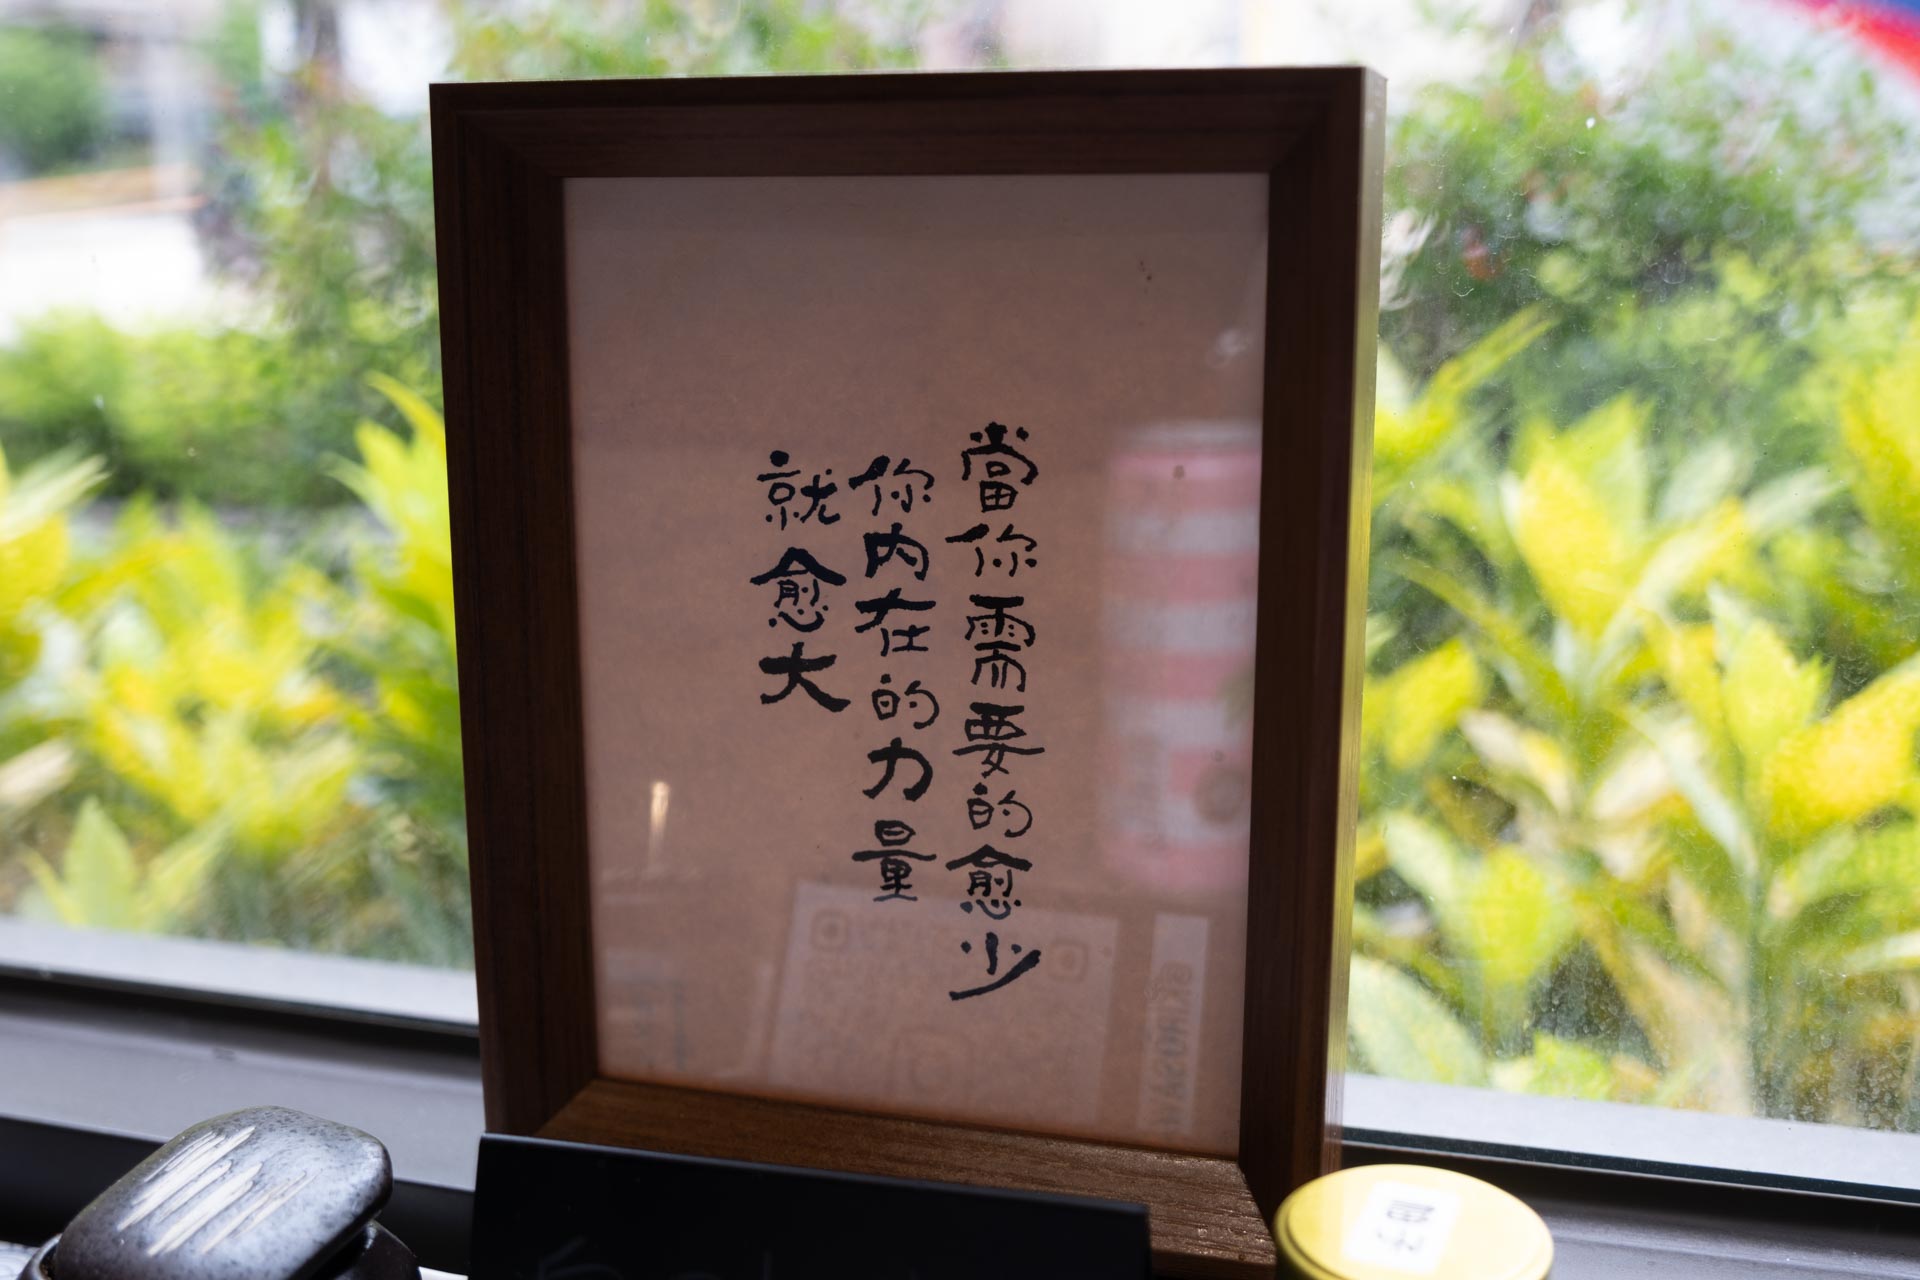 當你需要的愈少
你內在的力量
就愈大